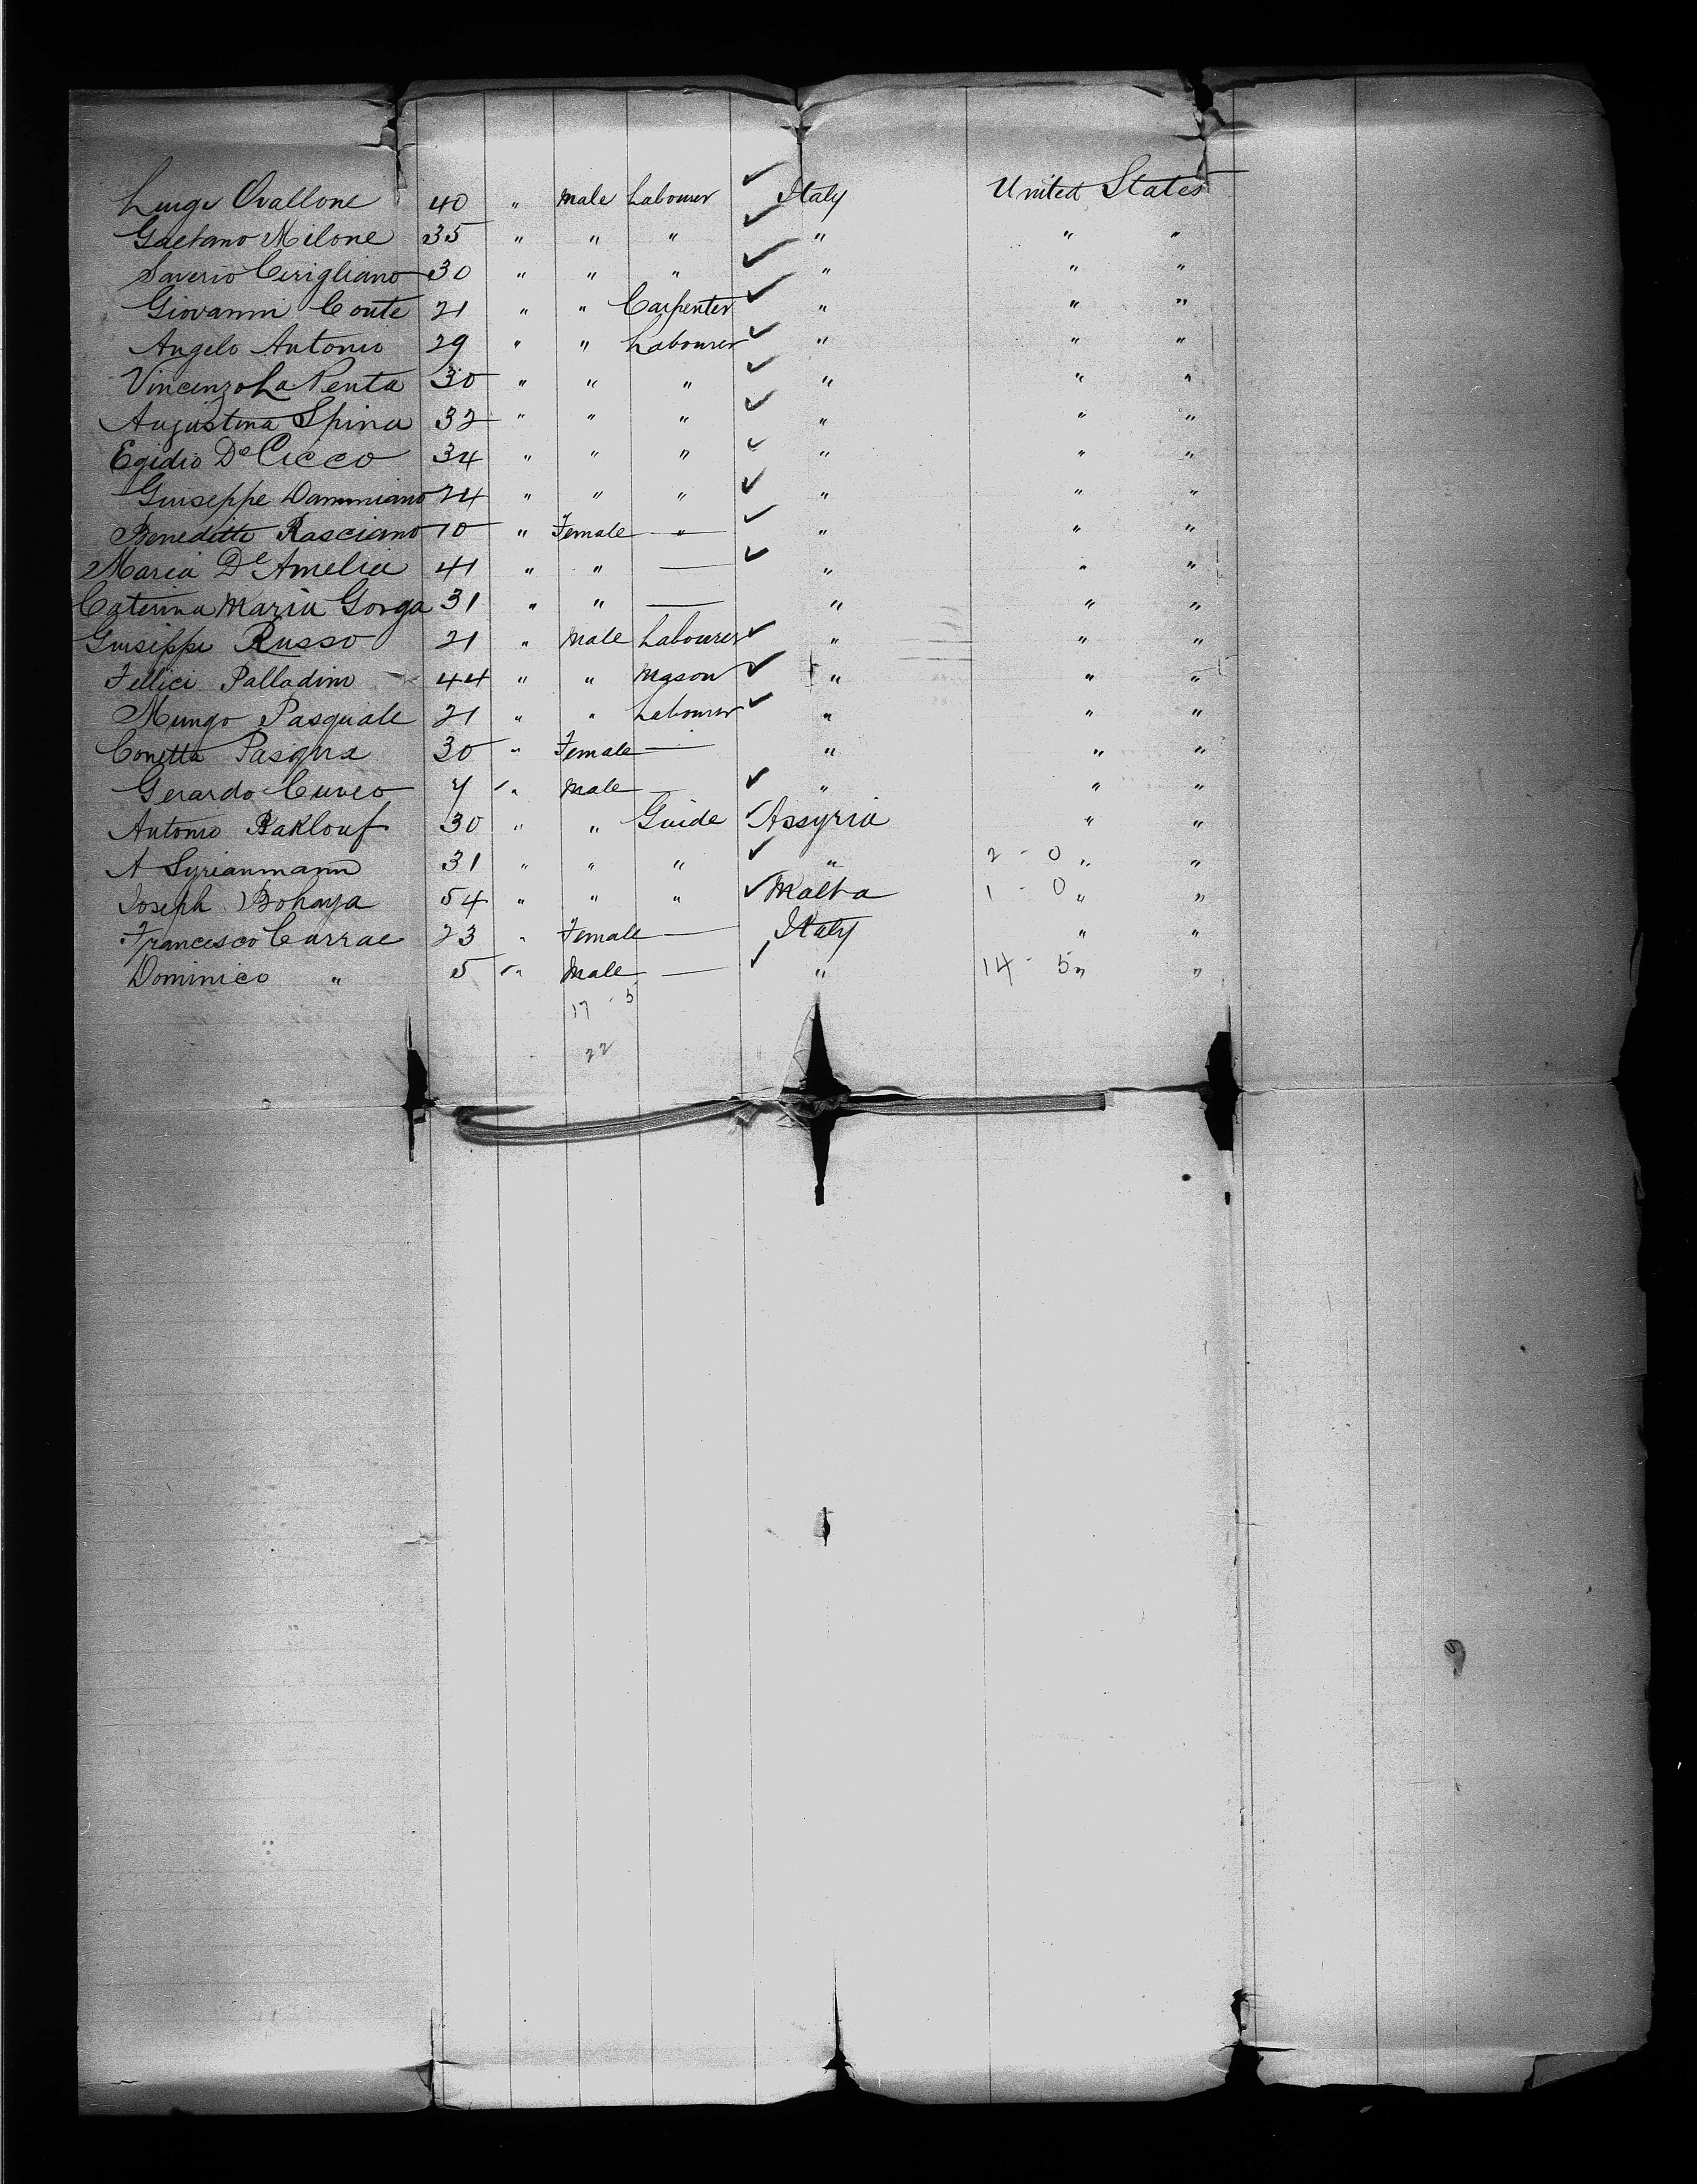 Luigi Ovallone 40 " Male Labourer ✓ Italy United States
Gaetano Milone 35 " " " ✓ " " "
Saverio Cirigliano 30 " " " ✓ " " "
Giovanni Conte 21 " " Carpenter ✓ " " "
Angelo Antonio 29 " " Labourer ✓ " " "
Vincenzo La Penta 30 " " " ✓ " " "
Augustina Spina 32 " " " ✓ " " "
Egidio De Cicco 34 " " " ✓ " " "
Guiseppe Dammiano 24 " " " ✓ " " "
Beneditti Rasciano 10 " Female " ✓ " " "
Maria De Amelia 41 " " — ✓ " " "
Caterina Maria Gorga 31 " " — " " "
Guiseppi Russo 21 " Male Labourer ✓ " " "
Fellici Palladino 44 " " Mason ✓ " " "
Mungo Pasquale 21 " " Labourer ✓ " " "
Conetta Pasqua 30 " Female — " " "
Gerardo Cuveo 7 " Male — ✓ " " "
Antonio Baklouf 30 " " Guide ✓ Assyria " "
A Syrianmann 31 " " " ✓ " 2 - 0 " "
Joseph Bohaya 54 " " " ✓ Malta 1 - 0 " "
Francesco Carrae 23 " Female — Italy " "
Dominico " 5 " Male — ✓ " 14 - 5 " "
17 - 5
22